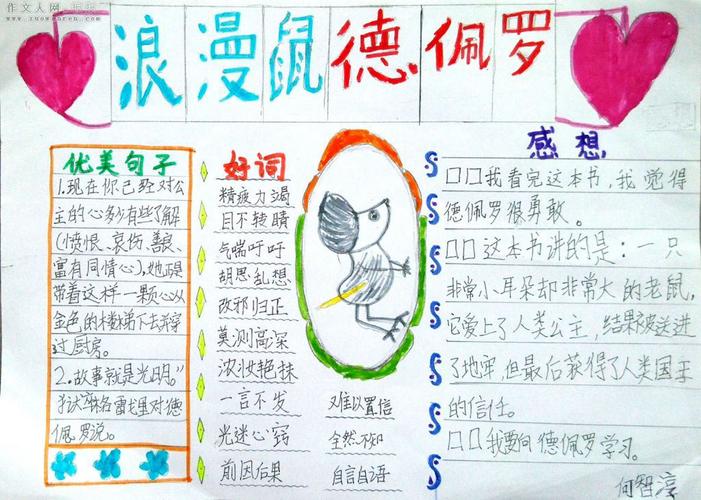 作文人网
www.zuowenren.com
浪漫鼠德佩罗
优美句子
1.现在你已经对公
主的心多少有些了解
(愤恨、哀伤、善良、
富有同情心),她正是
带着这样一颗心从
金色的楼梯下去并穿
过厨房。
2.故事就是光明。”
佩罗说。
好词
精疲力竭
目不转睛
气喘吁吁
胡思乱想
改邪归正
莫测高深
浓妆艳抹
一言不发
难以置信
光迷心窍
全然不知
前因后果
自言自语
感想
口口我看完这本书,我觉得
德佩罗很勇敢。
口口这本书讲的是:一只
非常小耳朵却非常大的老鼠,
它爱上了人类公主,结果被送进
了地牢,但最后获得了人类国王
的信任。
口口我要向德佩罗学习。
何智淳